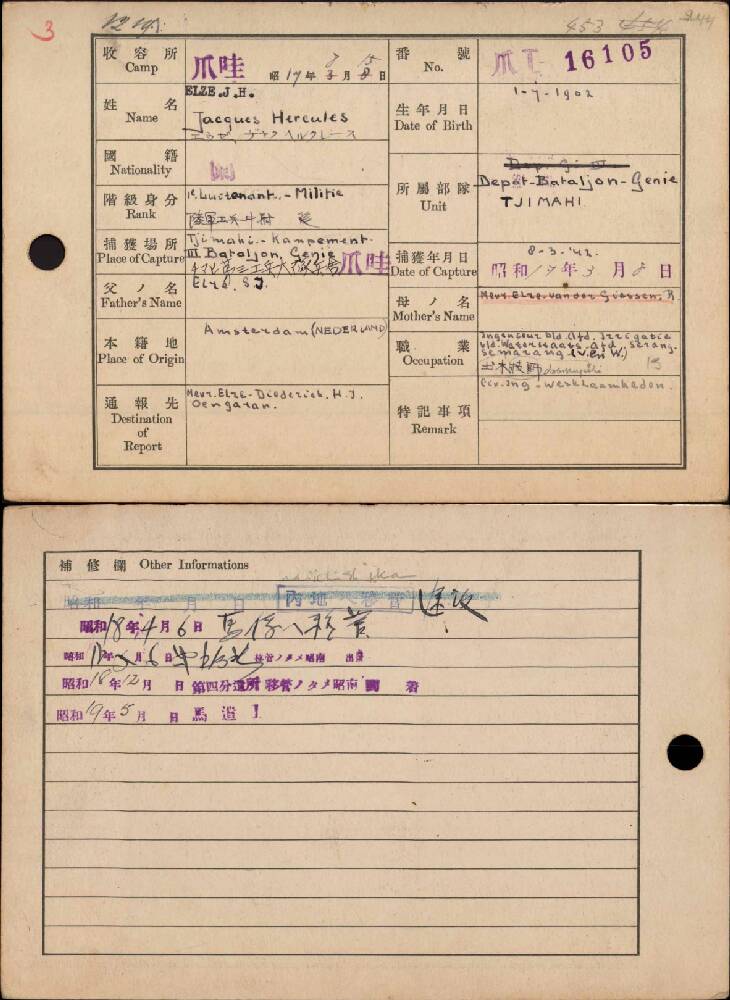 3
453
收容所
Camp
爪哇
昭17年8月15日
番號
No.
爪I 16105
姓名
Name
ELZE.J.H.
Jacques Hercules
生年月日
Date of Birth
1-7-1902
國籍
Nationality
階級身分
Rank
1e Luitenant.-Militie
所屬部隊
Unit
Depot-Bataljon-Genie
TJIMAHI.
捕獲場所
Place of Capture
Tjimahi.-Kampement.
III Bataljon, Genie
爪哇
捕獲年月日
Date of Capture
8-3-'42.
昭和17年3月8日
父ノ名
Father's Name
Elze, S.J.
母ノ名
Mother's Name
Mevr. Elze-van der Giessen, R.
本籍地
Place of Origin
Amsterdam (NEDERLAND)
職業
Occupation
Ingenieur b/d. Afd. Irrigatie
b/d. Waterstaats. Afd. Serang.
Semarang (V. en W.)
土木技師
13
通報先
Destination
of
Report
Mevr. Elze-Diederich, H.J.
Oengaran.
特記事項
Remark
Civ. Ing.-werkzaamheden.
補修欄 Other Informations
昭和 年 月 日 內地ヘ移管
昭和18年4月6日 馬俘ヘ移管
昭和 年 月6日 移管ノタメ昭南 出發
昭和18年12月 日 第四分遣所移管ノタメ昭南 着
昭和19年5月 日 馬 遣 I